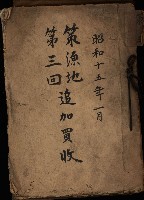 昭和十五年一月
第三回
築漁地追加買收